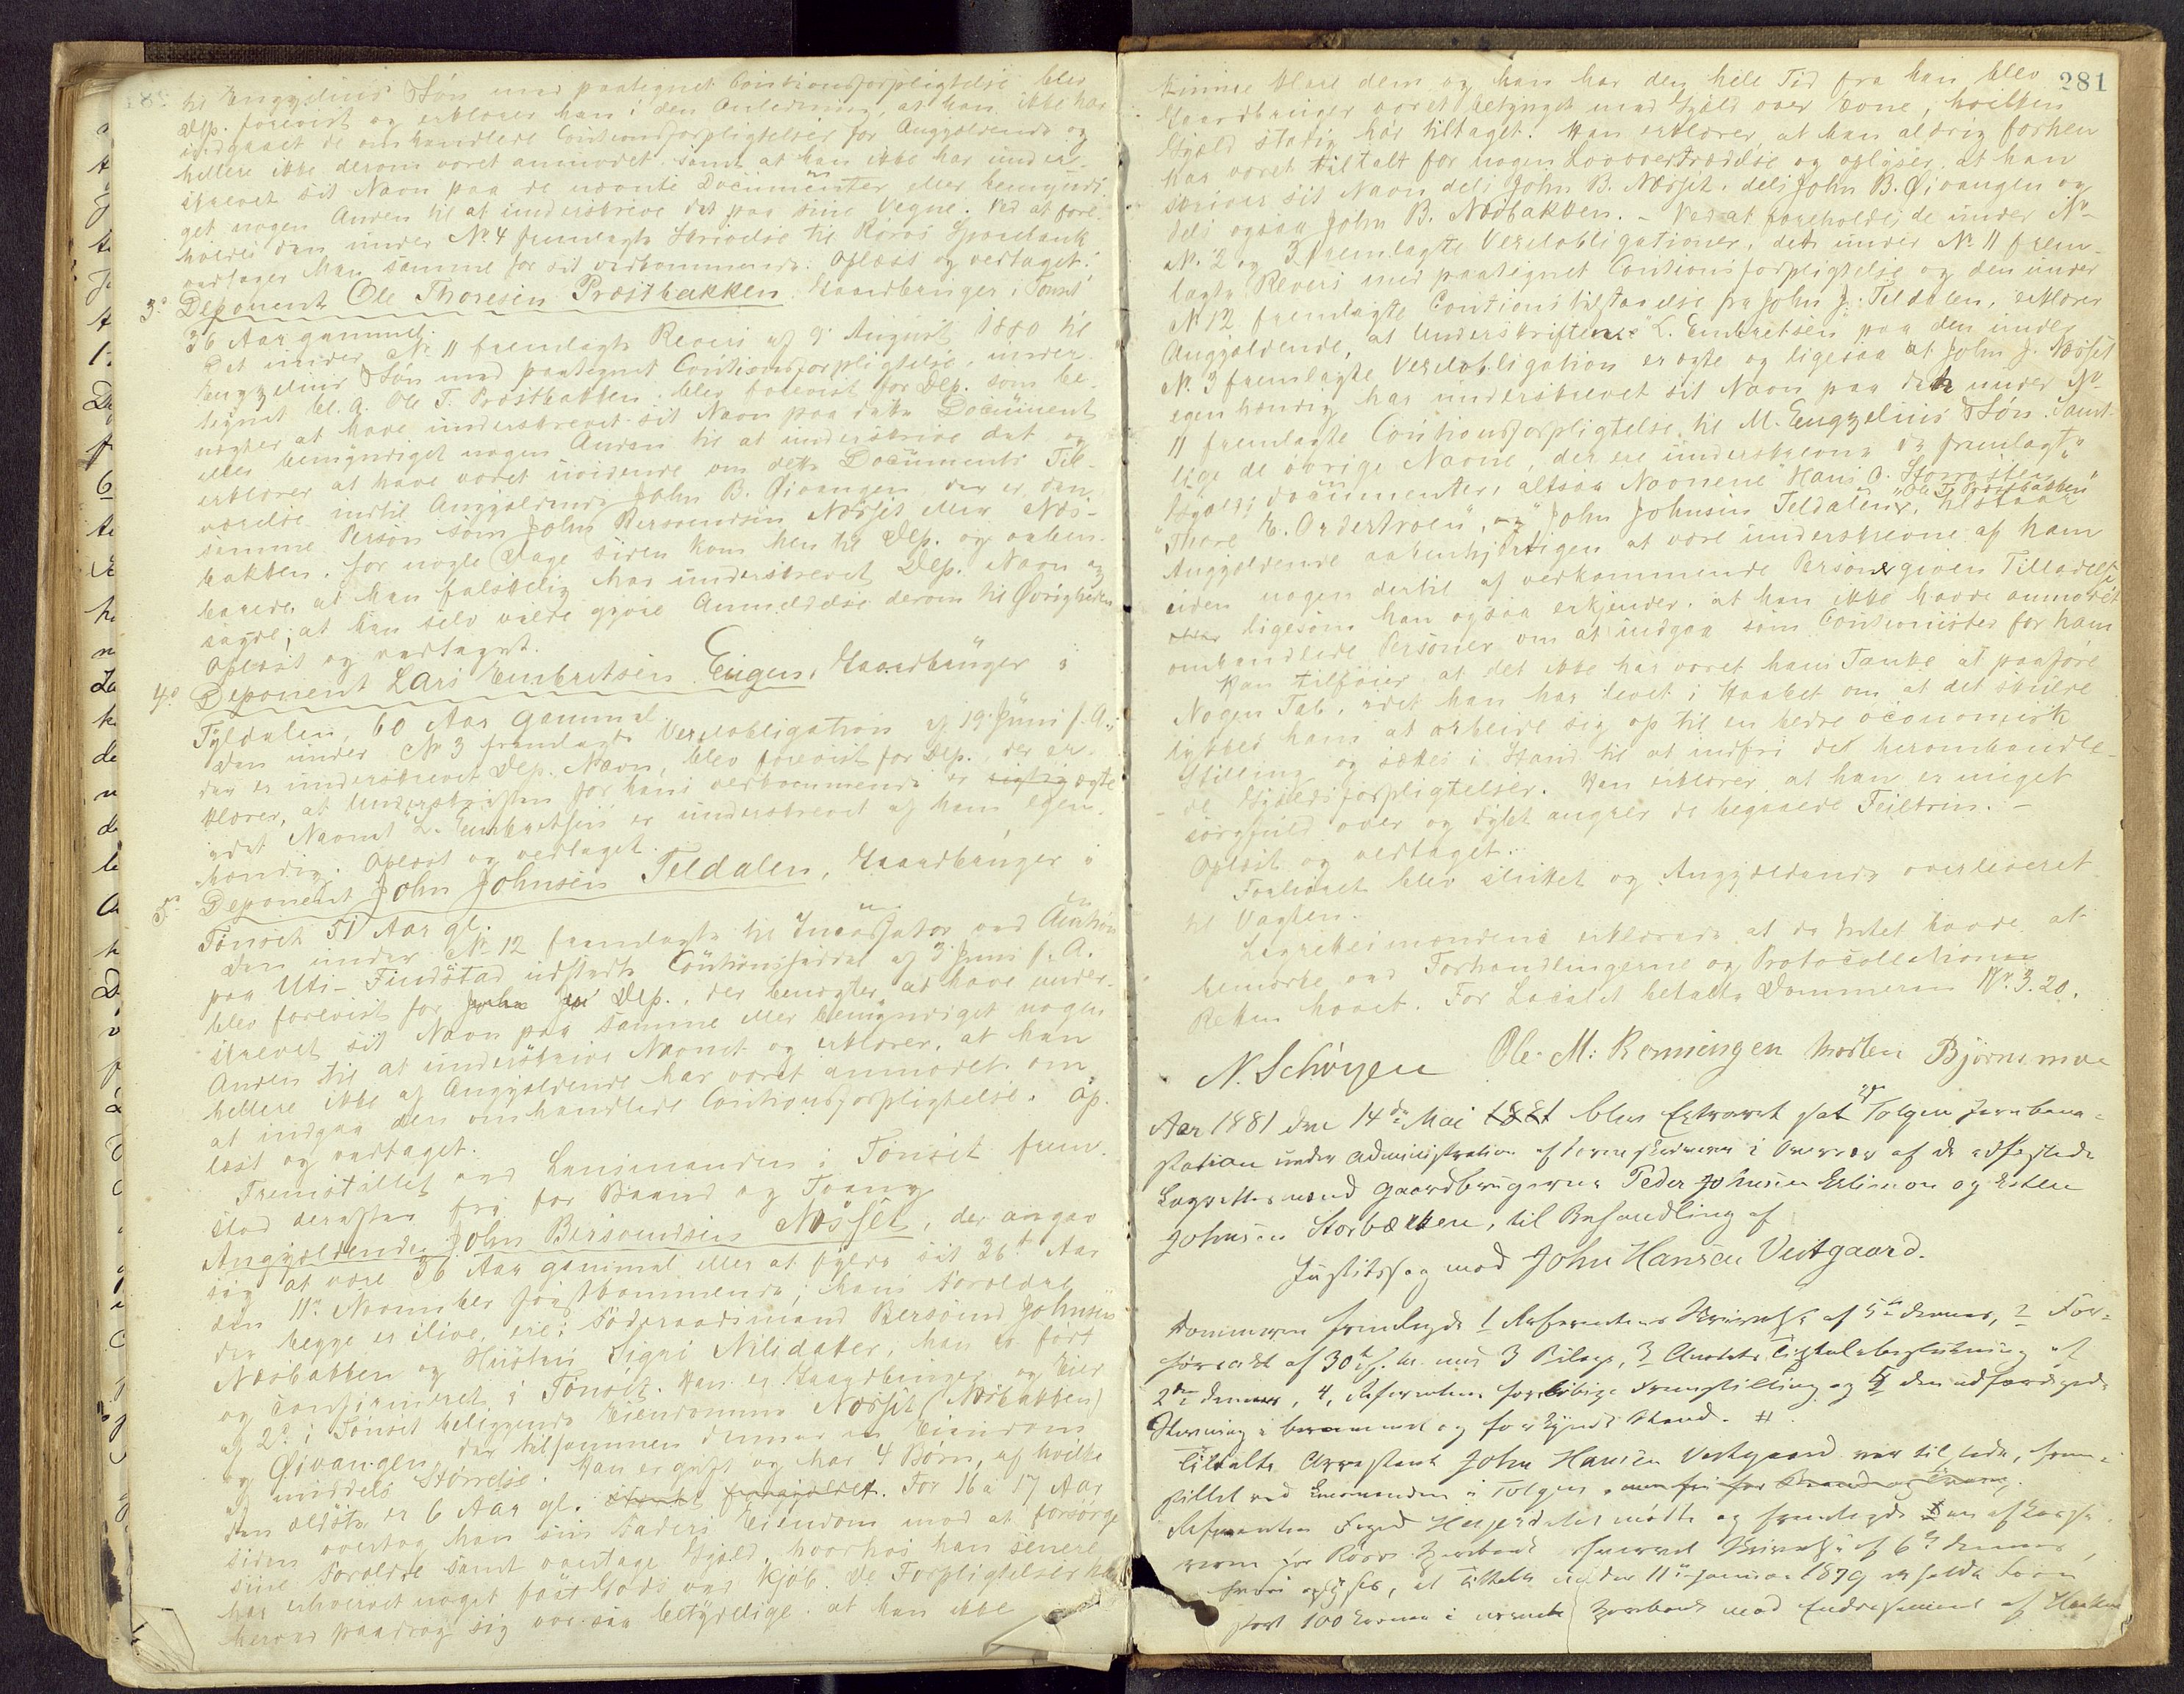 til Engzelius & Søn med paategnet Cautionsforpligtelse blev
Dep. forevist og erklærer han i den Anledning, at han ikke har
indgaaet de omhandlede Cautionsforpligtelser for Angjældende og
hellere ikke derom været anmodet samt at han ikke har under-
skrevet sit Navn paa de nævnte Documenter eller bemyndi-
get nogen Anden til at underskrive det paa sine Vegne. Ved at fore-
holdes den under No 4 fremlagte Skrivelse til Røros Sparebank
vedtager han samme for sit vedkommende. Oplæst og vedtaget.
3o Deponent Ole Thoresen Præstbakken, Gaardbruger i Tønset
36 Aar gammel.
Det under No 11 fremlagte Revers af 9de August 1880 til
Engzelius & Søn med paategnet Cautionsforpligtelse, under-
tegnet bl. a. Ole T. Præstbakken, blev forevist for Dep. som be-
nægter at have underskrevet sit Navn paa dette Document
eller bemyndiget nogen Anden til at underskrive det og
erklærer at have været uvidende om dette Documents Til-
værelse indtil Angjældende John B. Øivangen der er den
samme Person som John Bersvendsen Næsset eller Næs-
bakken, for nogle Dage siden kom hen til Dep. og aaben-
barede, at han falskelig har underskrevet Dep. Navn og
sagde, at han selv vilde gjøre Anmeldelse derom til Øvrigheden
Oplæst og vedtaget.
4o Deponent Lars Embretsen Eugen, Gaardbruger i
Tyldalen, 60 Aar gammel.
Den under No 3 fremlagte Vexelobligation af 19 Juni f. A.,
der er underskrevet Dep. Navn, blev forevist for Dep., der er-
klærer, at Underskriften for hans vedkommende er rigtig ægte
idet Navnet "L. Embretsen" er underskrevet af ham egen-
hændig. Oplæst og vedtaget.
5o Deponent John Johnsen Teldalen, Gaardbruger i
Tønset 51 Aar gl.
Den under No 12 fremlagte til Incassator ved Auction
paa Uti-Findstad udstedte Cautionsseddel af 3 Juni f. A.
blev forevist for John Dep., der benægter at have under-
skrevet sit Navn paa samme eller bemyndiget nogen
Anden til at underskrive Navnet og erklærer, at han
hellere ikke af Angjældende har været anmodet om
at indgaa den omhandlede Cautionsforpligtelse. Op-
læst og vedtaget.
Fremstillet ved Lensmanden i Tønset frem-
stod derefter fri for Baand og Tvang
Angjældende John Bersvendsen Næsset, der angav
sig at være 36 Aar gammel eller at fylde sit 36te Aar
den 11te November førstkommende; hans Forældre
der begge er ilive, ere: Føderaadsmand Bersvend Johnsen
Næsbakken og Hustru Sigri Nilsdatter, han er født
og confirmeret i Tønset. Han er Gaardbruger og Eier
af 2de i Tønset beliggende Eiendomme Næsset (Næsbakken)
og Øivangen der tilsammen danner en Eiendom
af middels Størrelse. Han er gift og har 4 Børn, af hvilke
den ældste er 6 Aar gl. For 16 à 17 Aar
siden overtog han sin Faders Eiendom mod at forsørge
sine Forældre samt overtage Gjæld, hvorhos han senere
har erhvervet noget fast Gods ved Kjøb. De Forpligtelser han
herved paadrog sig var saa betydelige, at han ikke
281
kunne klare dem og han har den hele Tid fra han blev
Gaardbruger været betynget med Gjæld over Evne, hvilken
Gjæld stadig har tiltaget. Han erklærer, at han aldrig forhen
har været tiltalt for nogen Lovovertrædelse og oplyser, at han
skriver sit Navn dels John B. Næsset, dels John B. Øivangen og
dels ogsaa John B. Næsbakken. – Ved at foreholdes de under No
No 2 og 3 fremlagte Vexelobligationer, det under No 11 frem-
lagte Revers med paategnet Cautionsforpligtelse og den under
No 12 fremlagte Cautionstilstaaelse fra John J. Teldalen, erklærer
Angjældende, at Underskriften "L. Embretsen" paa den under
No 3 fremlagte Vexelobligation er ægte og ligesaa at John J. Næsset
egenhændig har underskrevet sit Navn paa den under No
11 fremlagte Cautionsforpligtelse til M. Engzelius & Søn. Samt-
lige de øvrige Navne, der ere underskrevne de fremlagte
Gjælds documenter, altsaa Navnene "Hans O. Stormoen
"Thore E. Ordertroen", og "John Johnsen Teldalen", "Ole T. Præstbakken" tilstaar
Angjældende aabenhjertigen at være underskrevne af ham
uden nogen dertil af vedkommende Personer given Tilladelse
ligesom han ogsaa erkjender, at han ikke havde anmodet
omhandlede Personer om at indgaa som Cautionister for ham
Han tilføier at det ikke har været hans Tanke at paaføre
Nogen Tab, idet han har levet i Haabet om at det skulde
lykkes ham at arbeide sig op til en bedre øconomisk
Stilling og sættes i Stand til at indfri de heromhandle-
de Gjældsforpligtelser. Han erklærer at han er meget
sorgfuld over og dybt angrer de begaaede Feiltrin. –
Oplæst og vedtaget.
Forhøret blev sluttet og Angjældende overleveret
til Vagten.
Lagrettesmændene erklærede at de Intet havde at
bemærke ved Forhandlingerne og Protocollationen
Retten hævet. For Localet betalte Dommeren Kr. 3.20.
N. Schöyen Ole M: Rønningen Morten Bjørnsmoe
Aar 1881 den 14de Mai 1881 blev Extraret sat ved Tolgen Jernbane-
station under Administration af Sorenskriveren i Overvær af de edfæstede
Lagrettesmænd Gaardbrugerne Peder Johnsen Erlimon og Esten
Johnsen Storbækken, til Behandling af
Justitssag mod John Hansen Vestgaard.
Dommeren fremlagde 1 Referentens Skrivelse af 5te dennes, 2 For-
hørsact af 30te f. M. med 3 Bilage, 3 Amtets Tiltalebeslutning af
2den dennes, 4, Referentens foreløbige Fremstilling og 5 den udfærdigede
Stævning i berammet og forkyndt Stand. #
Tiltalte Arrestant John Hansen Vestgaard var tilstede, frem-
stillet ved Lensmanden i Tolgen, men fri for Baand og Tvang
Referenten Foged Hejerdahl mødte og fremlagde en af Kasse-
reren for Røros Sparebank skrevet Skrivelse af 6te dennes,
hvori oplyses, at Tiltalte under 11te Januar 1879 erholdt Laan
stort 100 Kroner i nævnte Sparebank mod Endossement af